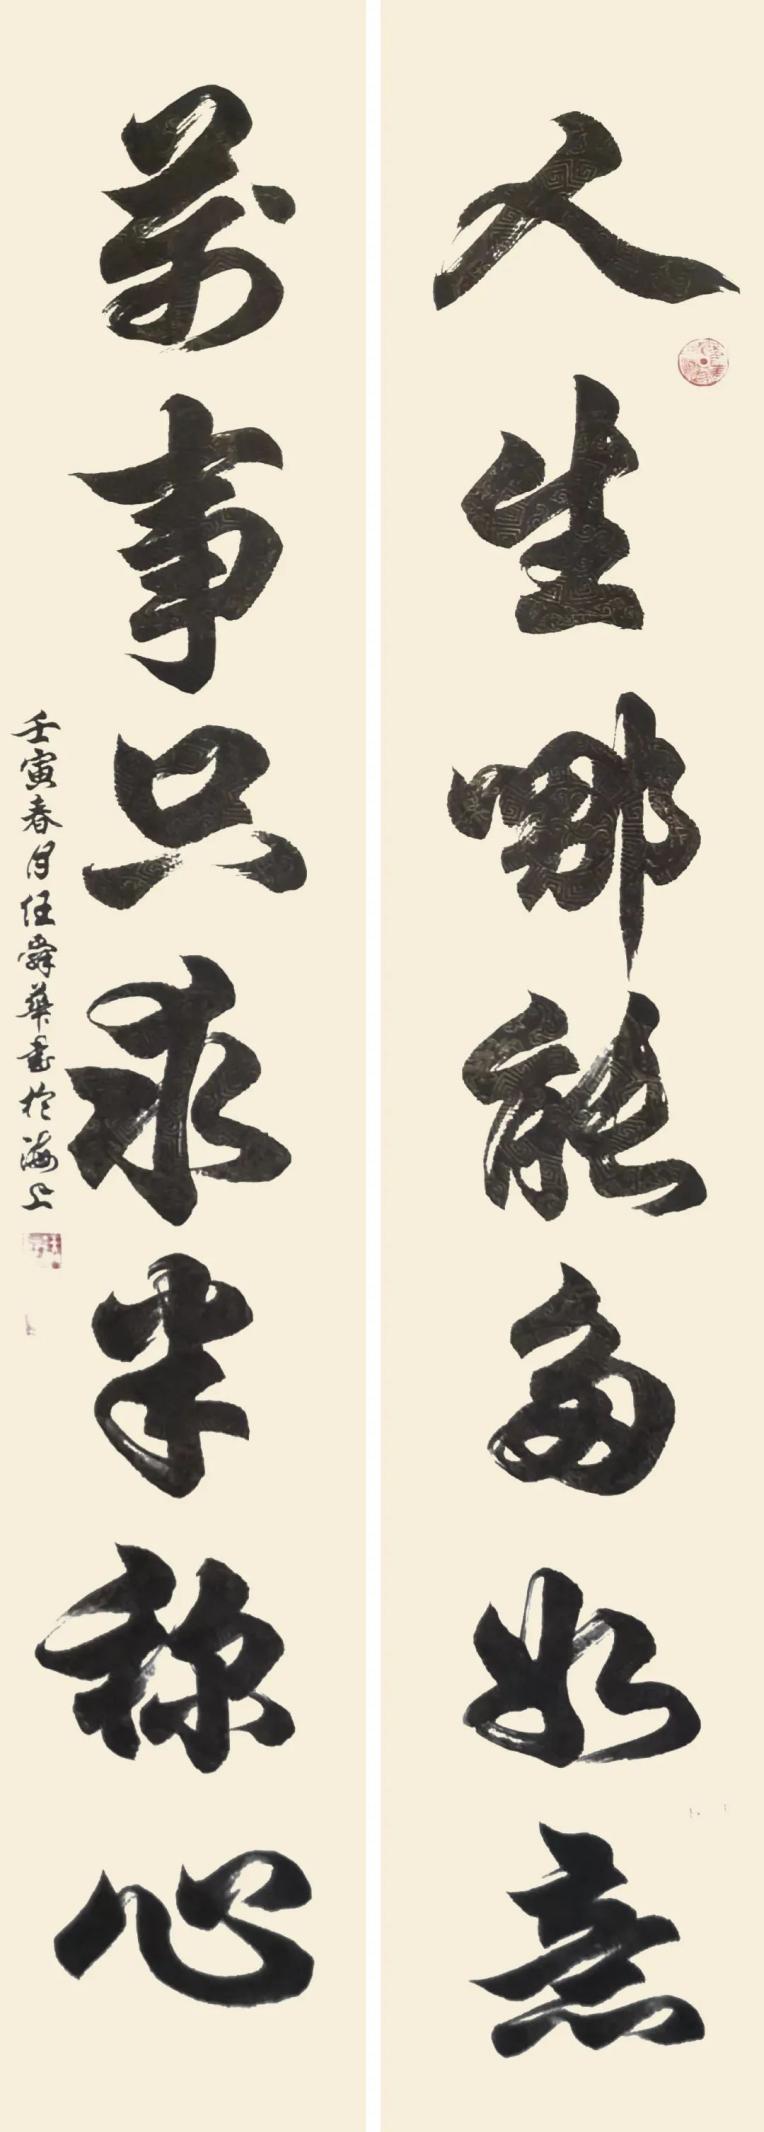 人生哪能多如意
萬事只求半称心
壬寅春月任舜華書於海上